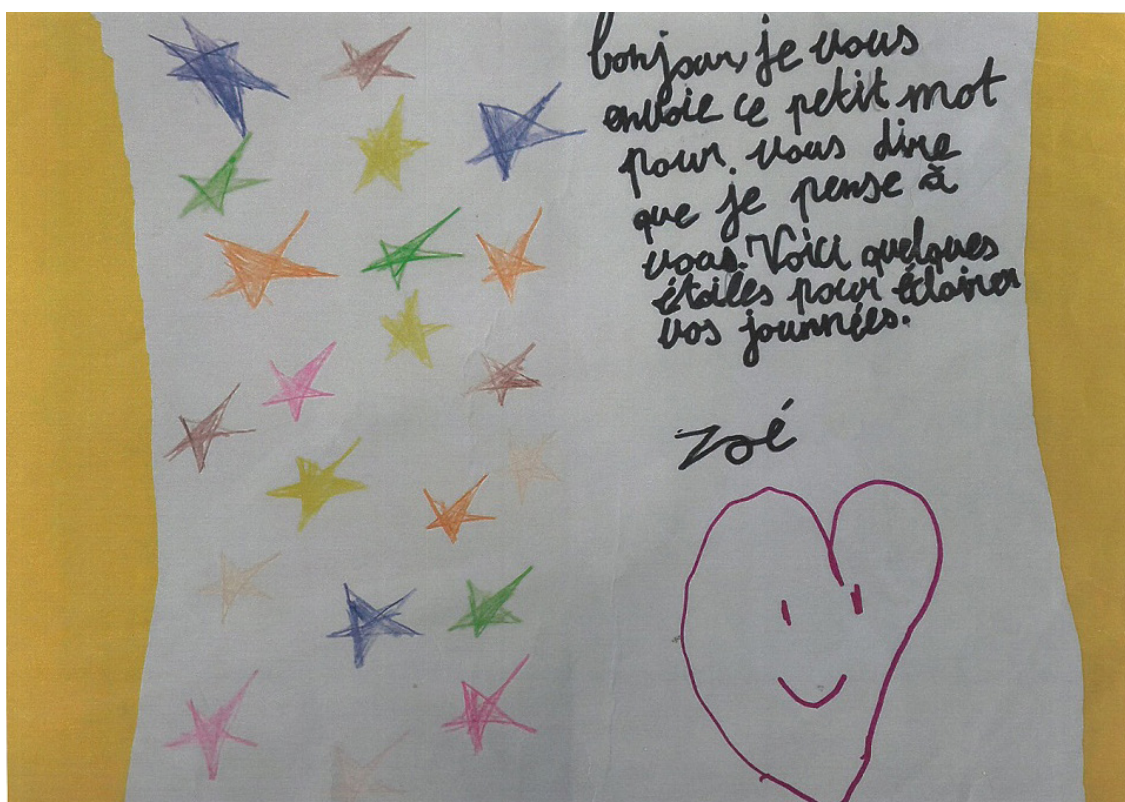 bonjour, je vous
envoie ce petit mot
pour vous dire
que je pense à
vous. Voici quelques
étoiles pour éclairer
vos jounnées.
Zoé